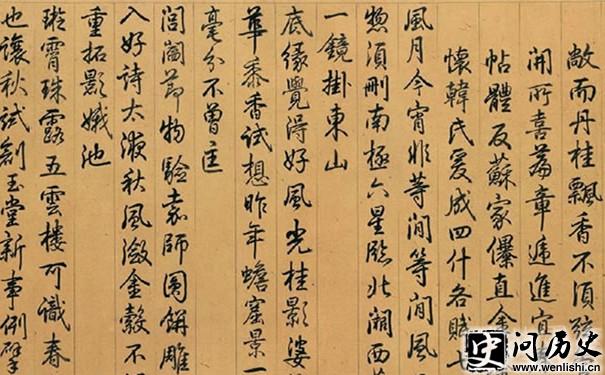 敞而丹桂飄香不須
開所喜篇章遞進宜
帖體反蘇家儤直金
懷韓氏爰成四什各賦七
風月今宵非等閒等閒風
惣須刪南極六星臨北闕西
一鏡掛東山
底緣覺得好風光桂影婆
華黍香試想昨年蟾窟景一
毫分不曾
閶闔節物驗嘉師圓餅雕
入好詩太液秋風澂金縠不
重拓影娥池
璇霄珠露五雲樓可識春
也讓秋試創玉堂新事例擘
问历史
www.wenlishi.cn